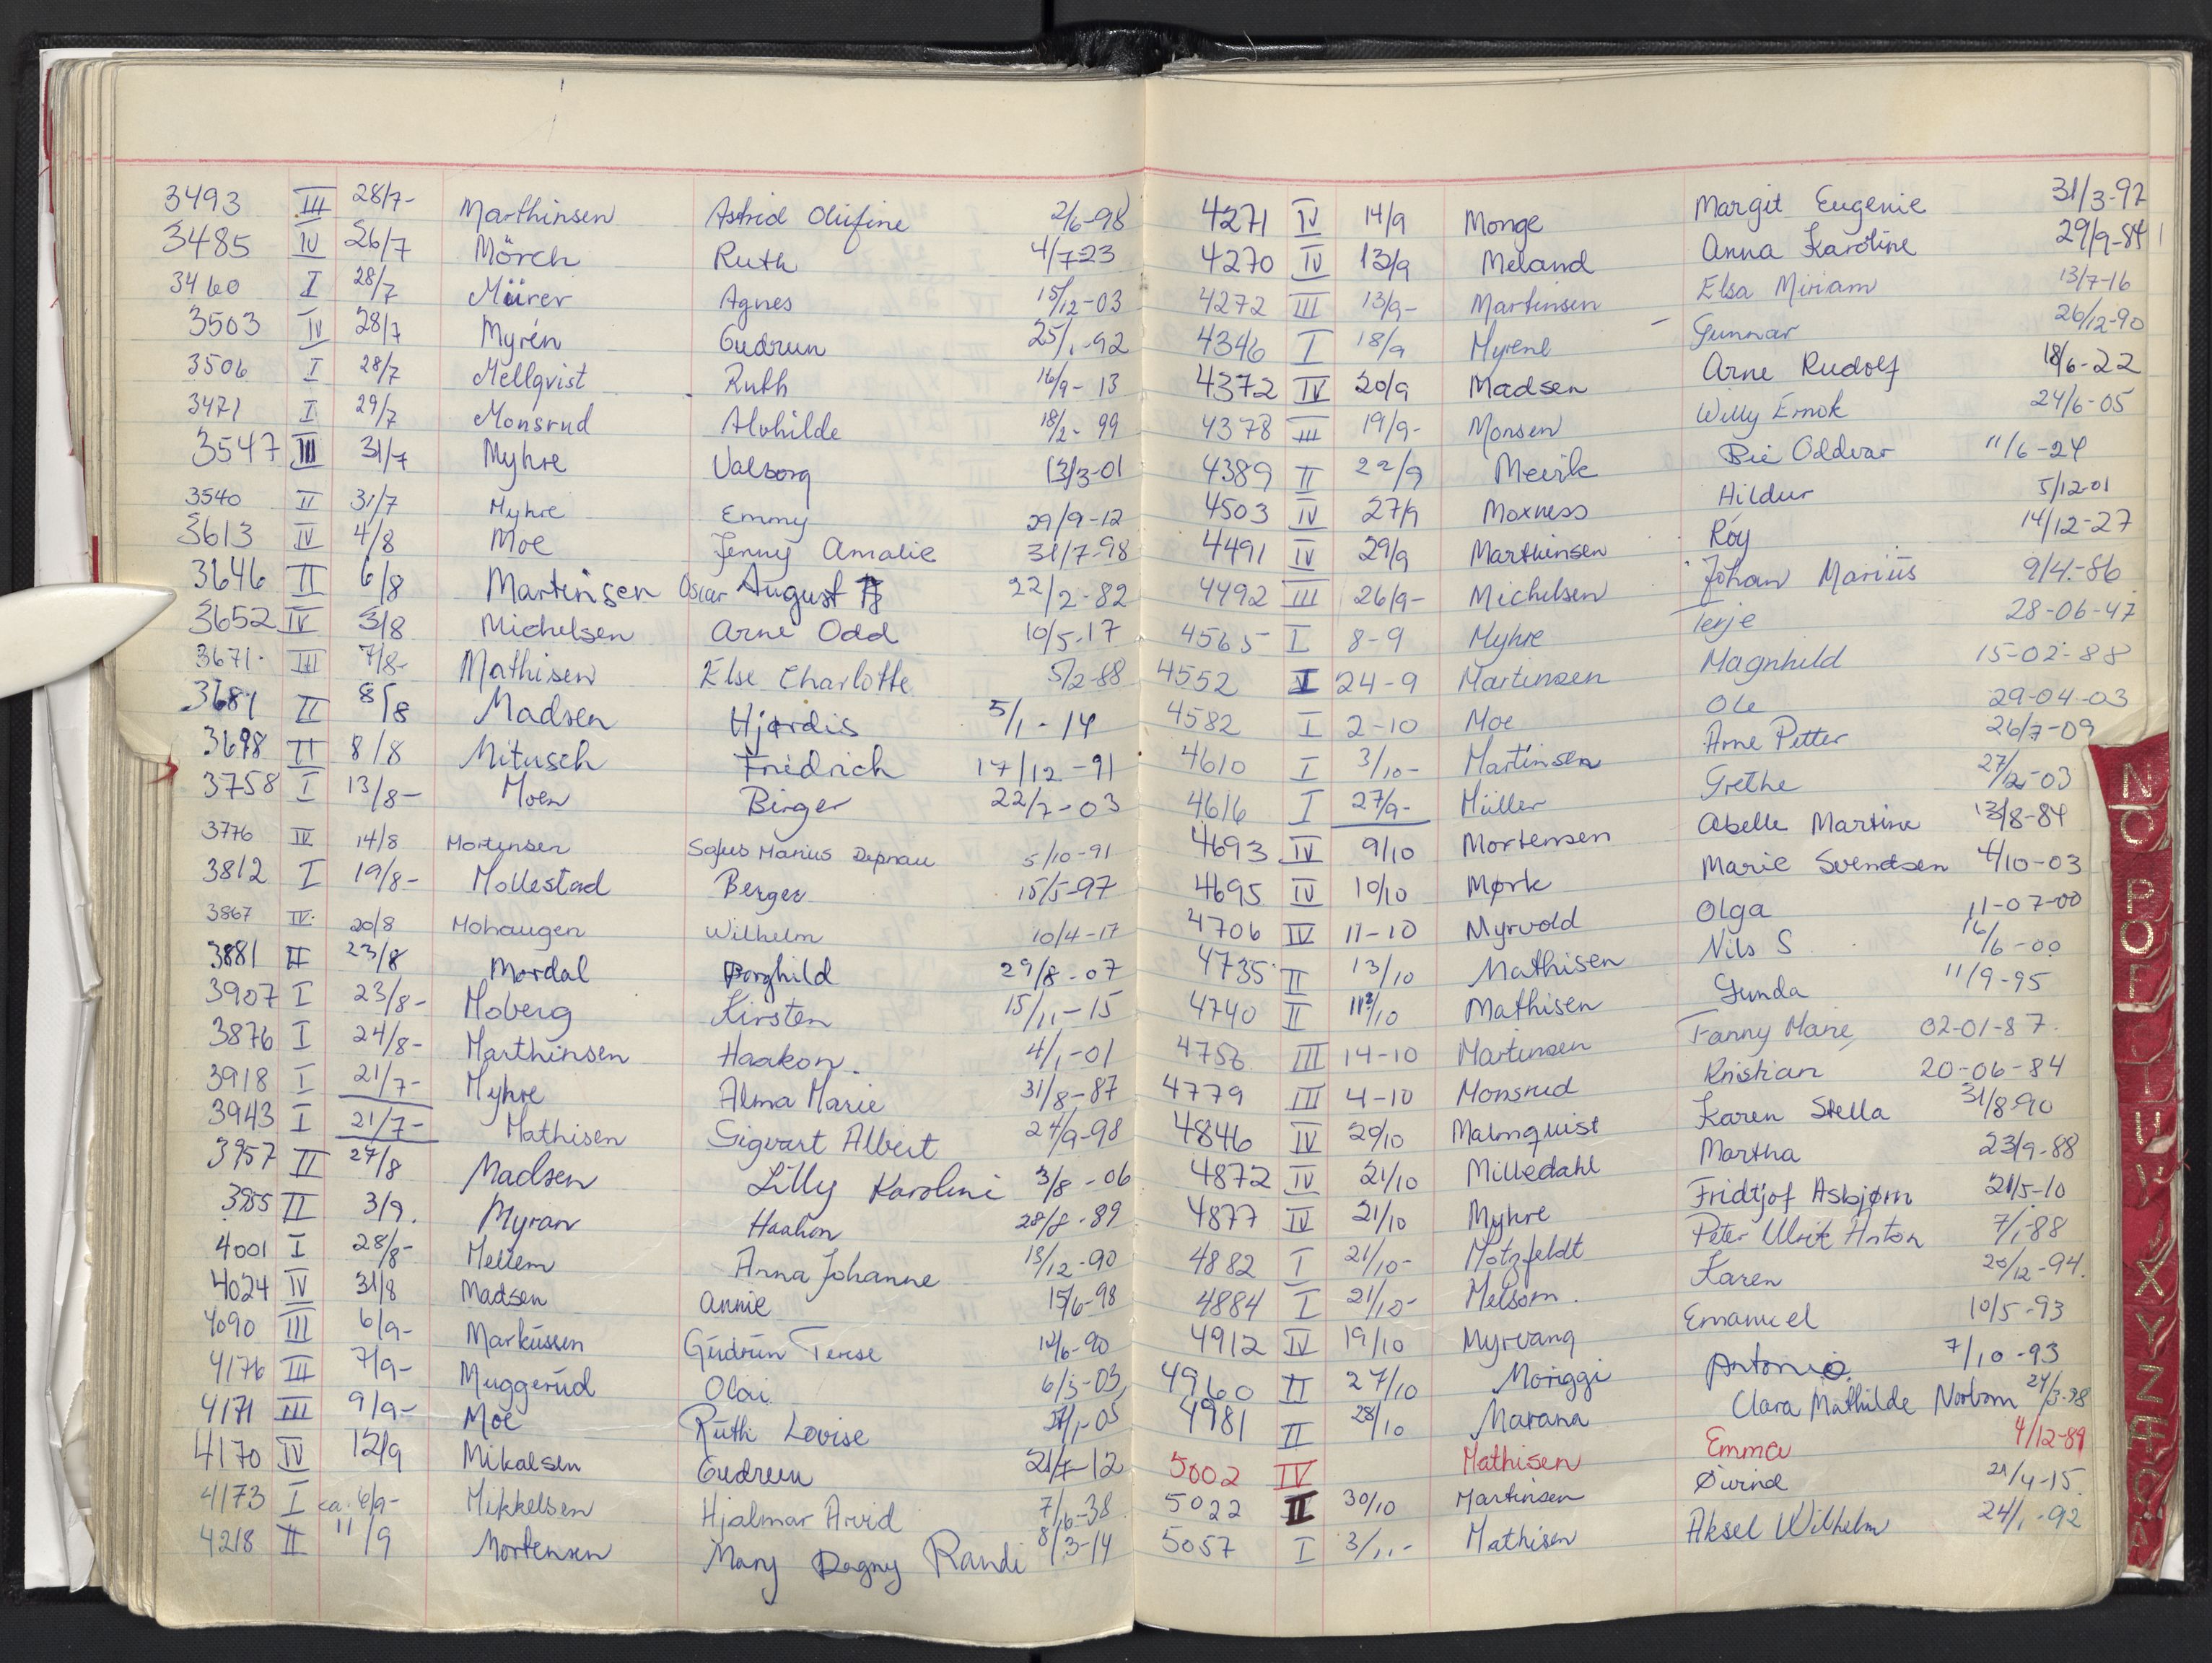 3493 III 28/7- Marthinsen Astrid Olufine 2/6-98
3485 IV 26/7 Mörch Ruth 4/7-23
3460 I 28/7 Mürer Agnes 15/12-03
3503 IV 28/7 Myrén Gudrun 25/1-92
3506 I 28/7 Mellqvist Ruth 16/9-13
3471 I 29/7 Monsrud Alvhilde 18/2-99
3547 III 31/7 Myhre Valborg 13/3-01
3540 II 31/7 Myhre Emmy 29/9-12
3613 IV 4/8 Moe Jenny Amalie 31/7-98
3646 II 6/8 Martinisen Oscar August 22/2-82
3652 IV 3/8 Michelsen Arne Odd 10/5-17
3671 III 7/8- Mathisen Else Charlotte 5/2-88
3681 II 8/8 Madsen Hjørdis 5/1-14
3698 II 8/8 Mitusch Friedrich 17/12-91
3758 I 13/8- Moen Birger 22/7-03
3776 IV 14/8 Mortensen Sofus Marius 5/10-91
3812 I 19/8- Mollestad Berger 15/5-97
3867 IV 20/8 Mohaugen Wilhelm 10/4-17
3881 II 23/8 Mordal Borghild 29/8-07
3907 I 23/8- Moberg Kirsten 15/11-15
3876 I 24/8- Marthinsen Haakon 4/1-01
3918 I 21/7- Myhre Alma Marie 31/8-87
3943 I 21/7- Mathisen Sigvart Albert 24/9-98
3957 II 27/8 Madsen Lilly Karolini 3/8-06
3985 II 3/9. Myran Haakon 28/8-89
4001 I 28/8- Mellem Anna Johanne 13/12-90
4024 IV 31/8 Madsen Annie 15/6-98
4090 III 6/9- Markussen Gudrun Terese 12/6-90
4176 III 7/9- Muggerud Olai 6/3-03
4171 III 9/9- Moe Ruth Lovise 27/1-05
4170 IV 12/9 Mikalsen Gudrun 21/7-12
4173 I ca. 6/9- Mikkelsen Hjalmar Arvid
4218 II 11/9 Mortensen Mary Dagny Randi 8/3-14
4271 IV 14/9 Monge Margit Eugenie 31/3-97
4270 IV 13/9 Meland Anna Karoline 29/9-84
4272 III 13/9- Martinsen Elsa Miriam 13/7-16
4346 I 18/9 Myrene Gunnar 26/12-90
4372 IV 20/9 Madsen Arne Rudolf 18/6-22
4378 III 19/9- Monsen Willy Ernok 24/6-05
4389 II 22/9 Mevik Oddvar 11/6-24
4503 IV 27/9 Moxness Hildur 5/12-01
4491 IV 29/9 Marthinsen Roy 14/12-27
4492 III 26/9- Michelsen Johan Marius 9/4-86
4565 I 8-9 Myhre Terje 28-06-47
4552 I 24-9 Martinsen Magnhild 15-02-88
4582 I 2-10 Moe Ole 29-04-03
4610 I 3/10- Martinsen Arne Petter 26/7-09
4616 I 27/9- Müller Grethe 27/12-03
4693 IV 9/10 Mortensen Abelle Martine 13/8-84
4695 IV 10/10 Mørk Marie Svendsen 4/10-03
4706 IV 11-10 Myrvold Olga 11-07-00
4735 II 13/10 Mathisen Nils S 16/6-00
4740 II Mathisen Gunda 11/9-95
4756 III 14-10 Martinsen Fanny Marie 02-01-87.
4779 III 4-10 Monsrud Kristian 20-06-84
4846 IV 20/10 Malmquist Karen Stella 31/8-90
4872 IV 21/10 Milledahl Martha 23/9-88
4877 IV 21/10 Myhre Fridtjof Asbjørn 21/5-10
4882 I 21/10- Motzfeldt Peter Ulrik Anton 7/1-88
4884 I 21/10- Melsom. Karen 20/12-94.
4912 IV 19/10 Myrvang Emanuel 10/5-93
4960 II 27/10 Moriggi Antonio 7/10-93
4981 II 28/10 Marana Clara Mathilde Norbom 27/3-98
5002 IV Mathisen Emma 4/12-89
5022 II 30/10 Martinsen Øivind 21/4-15
5057 I 3/11- Mathisen Aksel Wilhelm 24/1-92
N
O
P
Ø
X
Y
Z
Æ